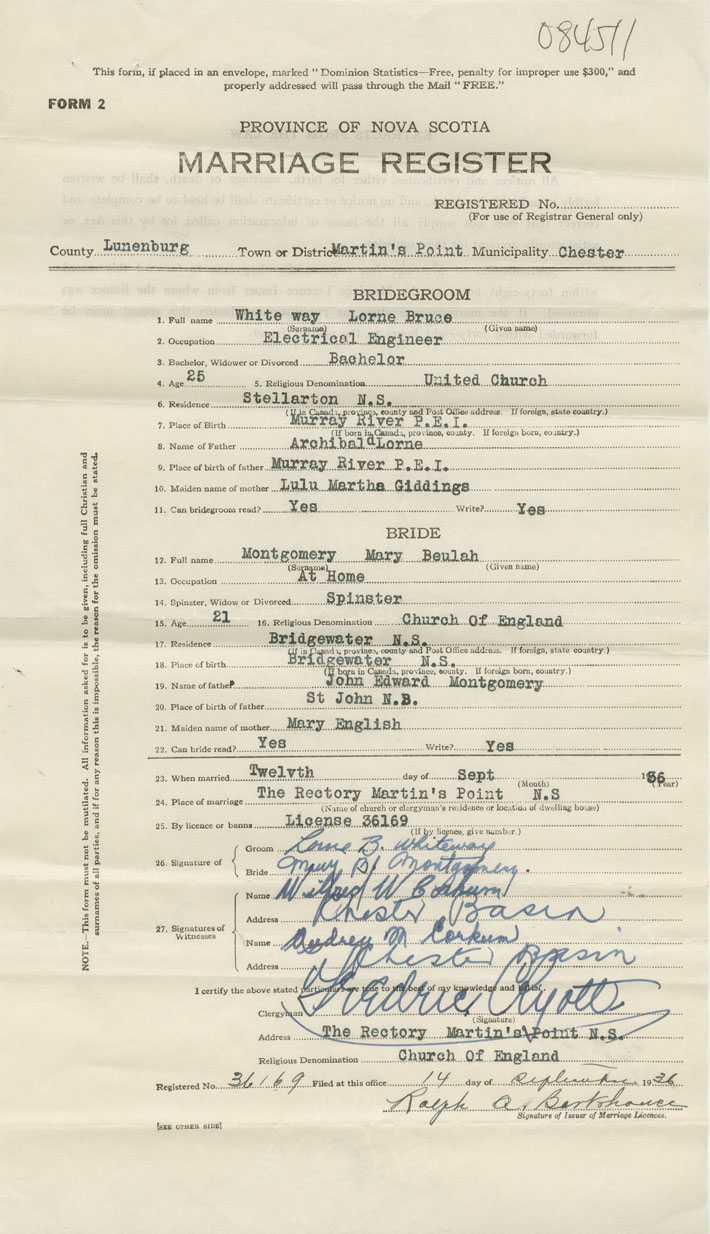 084511
This form, if placed in an envelope, marked "Dominion Statistics—Free, penalty for improper use $300," and
properly addressed will pass through the Mail "FREE."
FORM 2
PROVINCE OF NOVA SCOTIA
MARRIAGE REGISTER
REGISTERED No.
(For use of Registrar General only)
County Lunenburg Town or District Martin's Point Municipality Chester
BRIDEGROOM
1. Full name White way Lorne Bruce
(Surname) (Given name)
2. Occupation Electrical Engineer
3. Bachelor, Widower or Divorced Bachelor
4. Age 25 5. Religious Denomination United Church
6. Residence Stellarton N.S.
(If in Canada, province, county and Post Office address. If foreign, state country.)
7. Place of Birth Murray River P.E.I.
(If born in Canada, province, county. If foreign born, country.)
8. Name of Father Archibald Lorne
9. Place of birth of father Murray River P.E.I.
10. Maiden name of mother Lulu Martha Giddings
11. Can bridegroom read? Yes Write? Yes
BRIDE
12. Full name Montgomery Mary Beulah
(Surname) (Given name)
13. Occupation At Home
14. Spinster, Widow or Divorced Spinster
15. Age 21 16. Religious Denomination Church Of England
17. Residence Bridgewater N.S.
(If in Canada, province, county and Post Office address. If foreign, state country.)
18. Place of birth Bridgewater N.S.
(If born in Canada, province, county. If foreign born, country.)
19. Name of father John Edward Montgomery
20. Place of birth of father St John N.B.
21. Maiden name of mother Mary English
22. Can bride read? Yes Write? Yes
23. When married Twelvth day of Sept 1936
(Month) (Year)
24. Place of marriage The Rectory Martin's Point N.S
(Name of church or clergyman's residence or location of dwelling house)
25. By licence or banns License 36169
(If by licence, give number.)
26. Signature of
Groom Lorne B. Whiteway
Bride Mary B. Montgomery.
27. Signatures of Witnesses
Name Wilfred W Corkum
Address Chester Basin
Name Audrey M Corkum
Address Chester Basin
I certify the above stated particulars are true to the best of my knowledge and belief.
Clergyman
(Signature)
Address The Rectory Martin's Point N.S.
Religious Denomination Church Of England
Registered No. 36169 Filed at this office 14 day of September 1936
Ralph A.
Signature of Issuer of Marriage Licences.
[SEE OTHER SIDE]
NOTE.—This form must not be mutilated. All information asked for is to be given, including full Christian and
surnames of all parties, and if for any reason this is impossible, the reason for the omission must be stated.